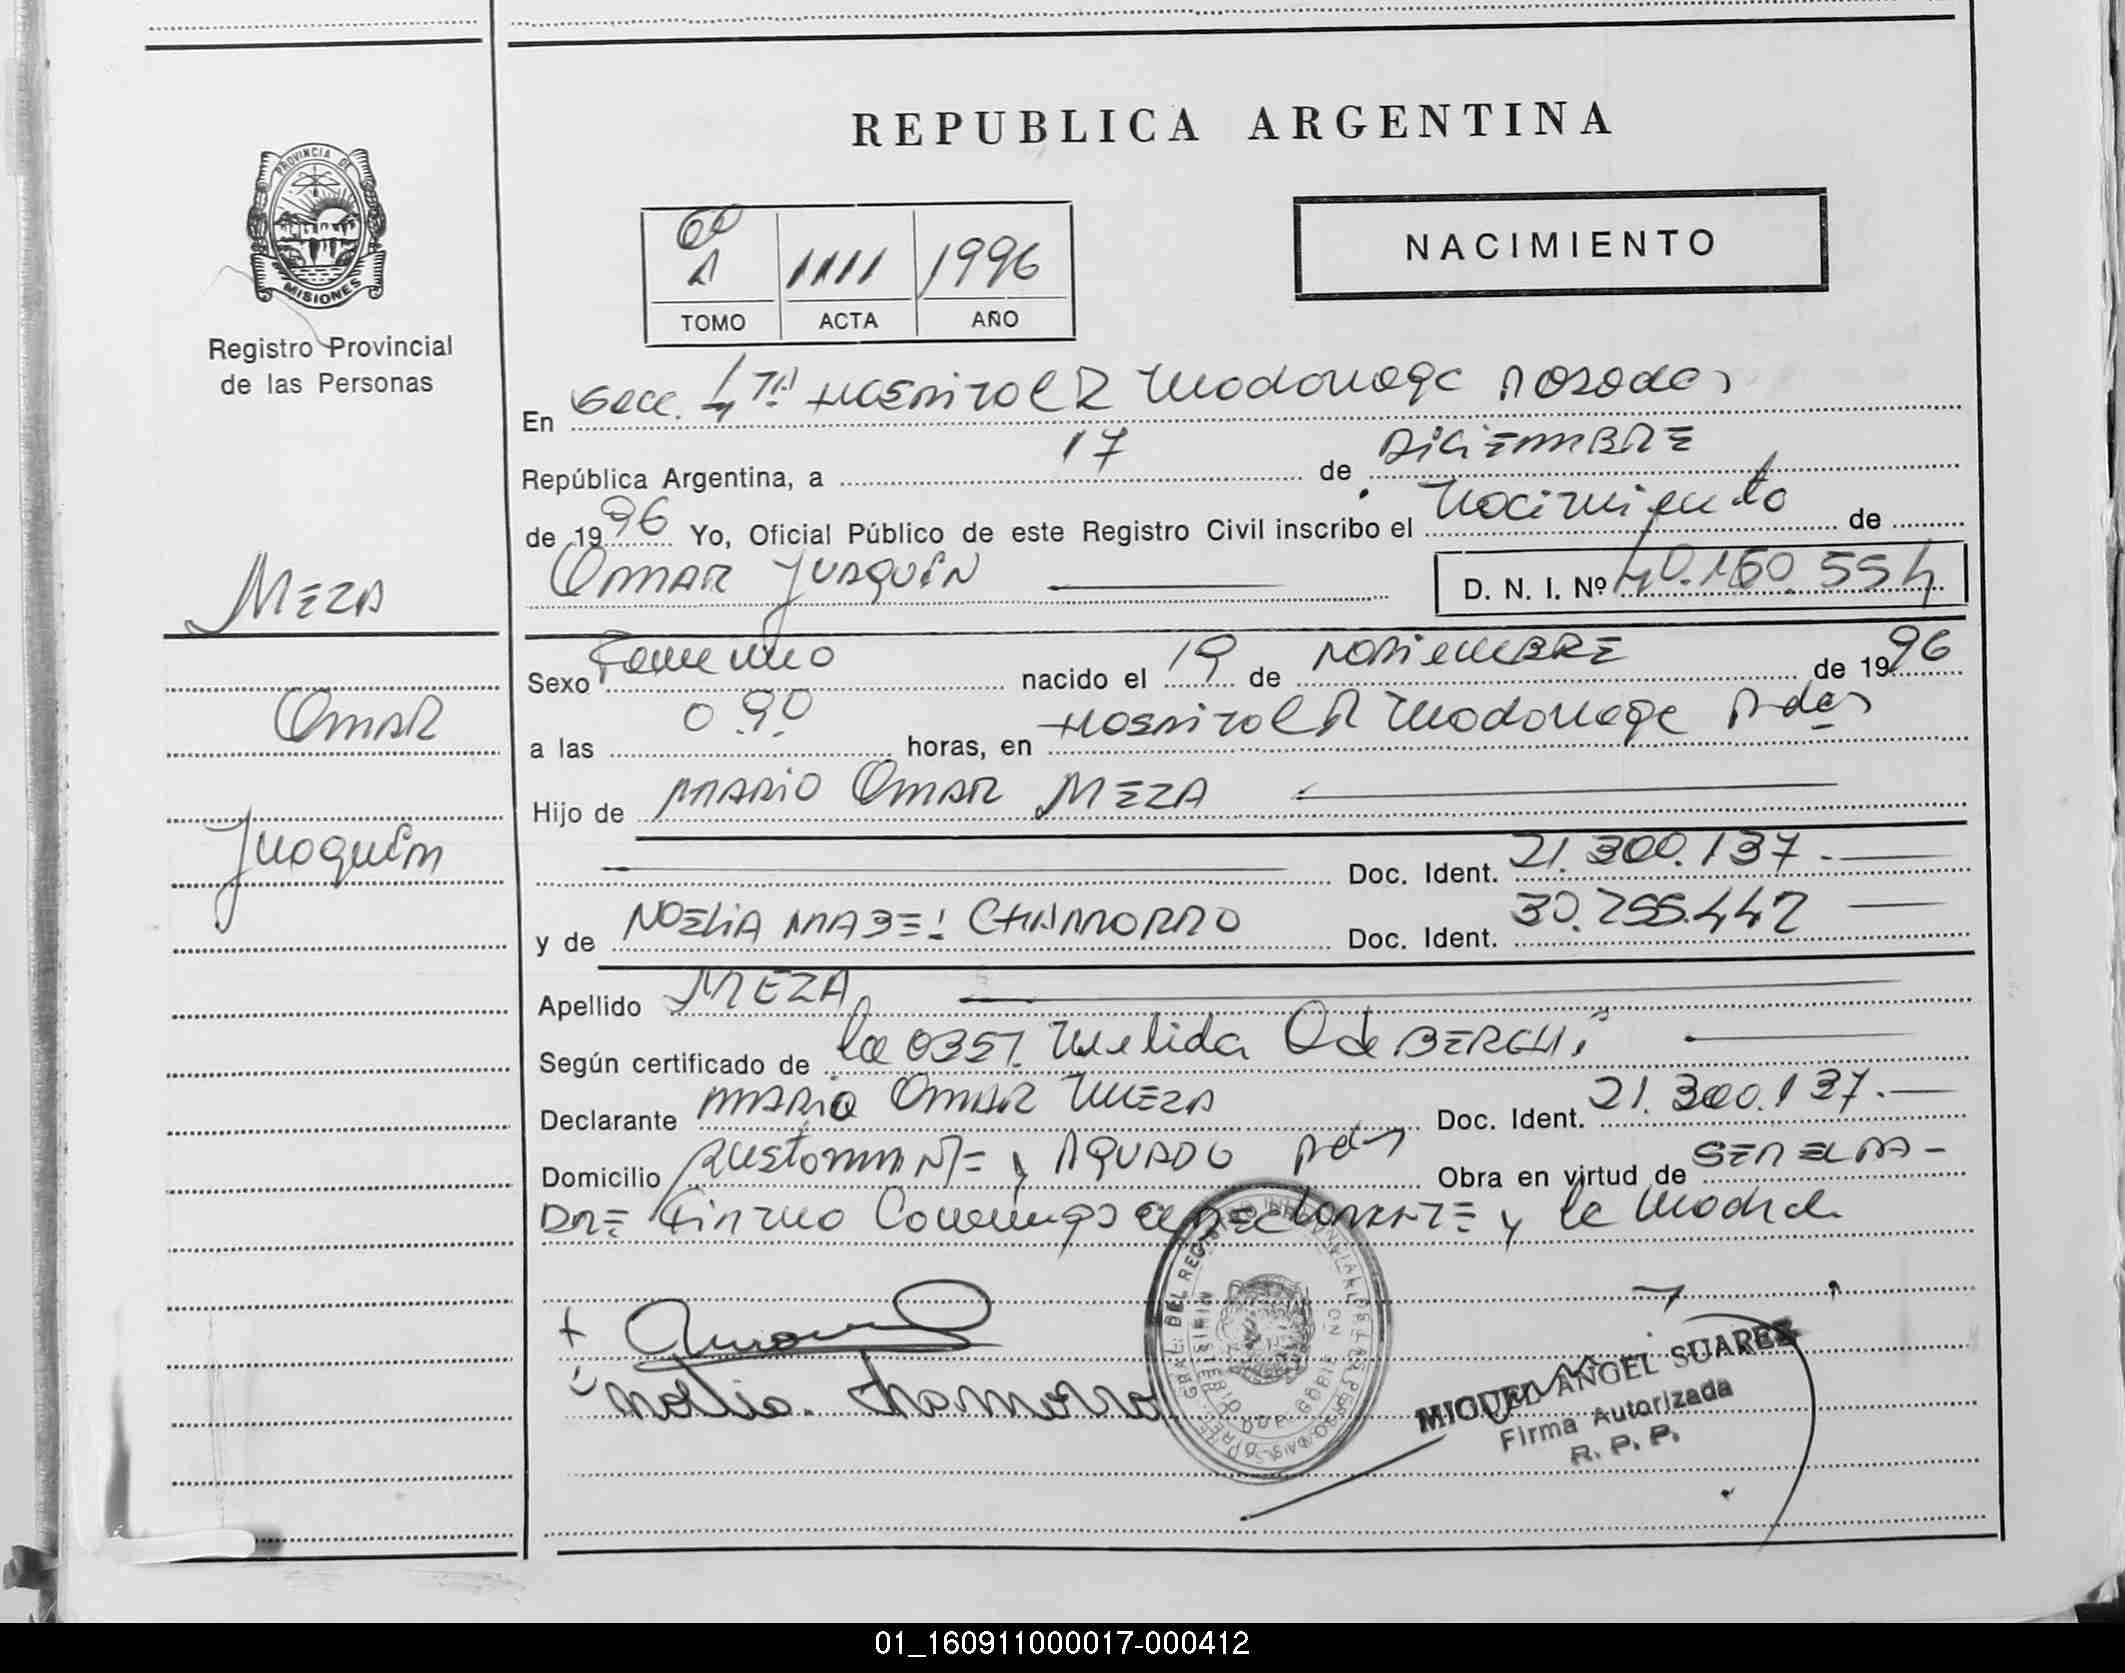 REPUBLICA ARGENTINA
PROVINCIA DE
MISIONES
Registro Provincial
de las Personas
60
1
1111
1996
TOMO ACTA AÑO
NACIMIENTO
En Secc. 4ta Hospital R Madariaga Posadas
República Argentina, a 17 de DiCiEMBRE
de 1996 Yo, Oficial Público de este Registro Civil inscribo el Nacimiento de
OMAR JUAQUÍN D. N. I. Nº 40.160.554
MEZA
Omar
Juaquín
Sexo Femenino nacido el 19 de NOViEMBRE de 1996
a las 0.90 horas, en Hospital R Madariaga Pdas
Hijo de MARiO OMAR MEZA
Doc. Ident. 21.300.137.
y de NOELiA MABEL CHAMORRO Doc. Ident. 30.255.442
Apellido MEZA
Según certificado de la OBST. Melida Q de BERGHI
Declarante MARiO OMAR MEZA Doc. Ident. 21.300.137.
Domicilio BUSTAMANTE y AGUADO Pdas Obra en virtud de SER EL PA-
DRE Firma Conmigo el DECLARANTE y la Madre
Noelia. Chamorro
MIGUEL ANGEL SUAREZ
Firma Autorizada
R. P. P.
01_160911000017-000412